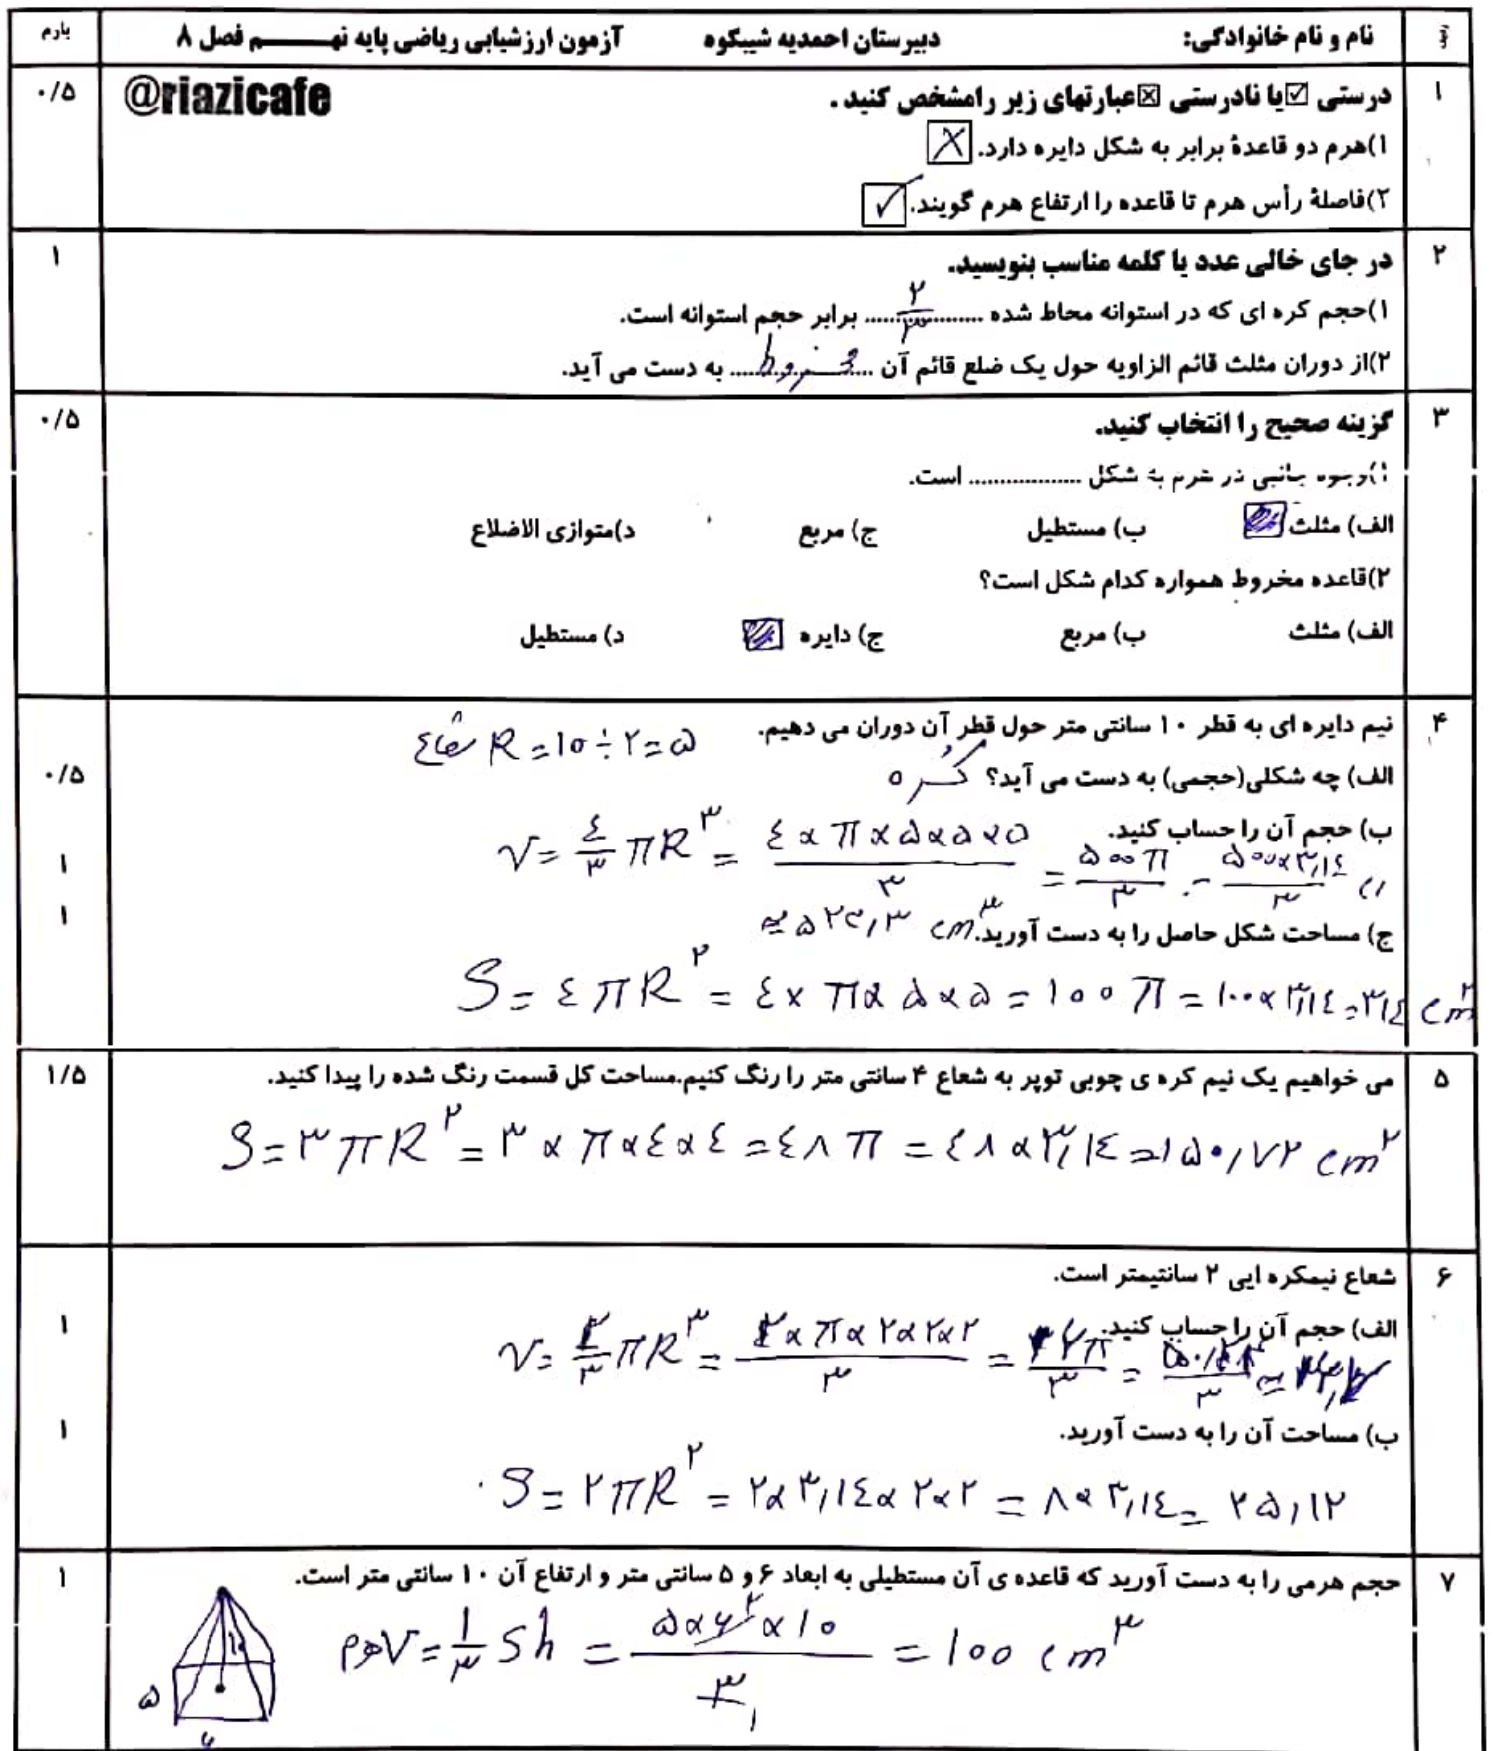 نام و نام خانوادگی: دبیرستان احمدیه شیبکوه آزمون ارزشیابی ریاضی پایه نهـــم فصل ۸ بارم
۱ درستی ☑یا نادرستی ☒عبارتهای زیر رامشخص کنید . @riazicafe ۰/۵
۱)هرم دو قاعدهٔ برابر به شکل دایره دارد. ☒
۲)فاصلهٔ رأس هرم تا قاعده را ارتفاع هرم گویند. ☑
۲ در جای خالی عدد یا کلمه مناسب بنویسید. ۱
۱)حجم کره ای که در استوانه محاط شده ......۲/۳...... برابر حجم استوانه است.
۲)از دوران مثلث قائم الزاویه حول یک ضلع قائم آن ...مخروط... به دست می آید.
۳ گزینه صحیح را انتخاب کنید. ۰/۵
۱)وجوه جانبی در هرم به شکل .................. است.
الف) مثلث ب) مستطیل ج) مربع د)متوازی الاضلاع
۲)قاعده مخروط همواره کدام شکل است؟
الف) مثلث ب) مربع ج) دایره د) مستطیل
۴ نیم دایره ای به قطر ۱۰ سانتی متر حول قطر آن دوران می دهیم. شعاع R = ۱۰ ÷ ۲ = ۵
الف) چه شکلی(حجمی) به دست می آید؟ کُره ۰/۵
ب) حجم آن را حساب کنید. ۱
V = ۴/۳ πR³ = ۴×π×۵×۵×۵/۳ = ۵۰۰π/۳ = ۵۰۰×۳٫۱۴/۳
≃ ۵۲۳٫۳ cm³
ج) مساحت شکل حاصل را به دست آورید. ۱
S = ۴πR² = ۴×π×۵×۵ = ۱۰۰π = ۱۰۰×۳٫۱۴ = ۳۱۴ cm²
۵ می خواهیم یک نیم کره ی چوبی توپر به شعاع ۴ سانتی متر را رنگ کنیم.مساحت کل قسمت رنگ شده را پیدا کنید. ۱/۵
S = ۳πR² = ۳×π×۴×۴ = ۴۸π = ۴۸×۳٫۱۴ = ۱۵۰٫۷۲ cm²
۶ شعاع نیمکره ایی ۲ سانتیمتر است.
الف) حجم آن را حساب کنید. ۱
V = ۲/۳ πR³ = ۲×π×۲×۲×۲/۳ =
ب) مساحت آن را به دست آورید. ۱
S = ۲πR² = ۲×۳٫۱۴×۲×۲ = ۸×۳٫۱۴ = ۲۵٫۱۲
۷ حجم هرمی را به دست آورید که قاعده ی آن مستطیلی به ابعاد ۶ و ۵ سانتی متر و ارتفاع آن ۱۰ سانتی متر است. ۱
هرم V = ۱/۳ Sh = ۵×۶×۱۰/۳ = ۱۰۰ cm³
۱۰
۵
۶